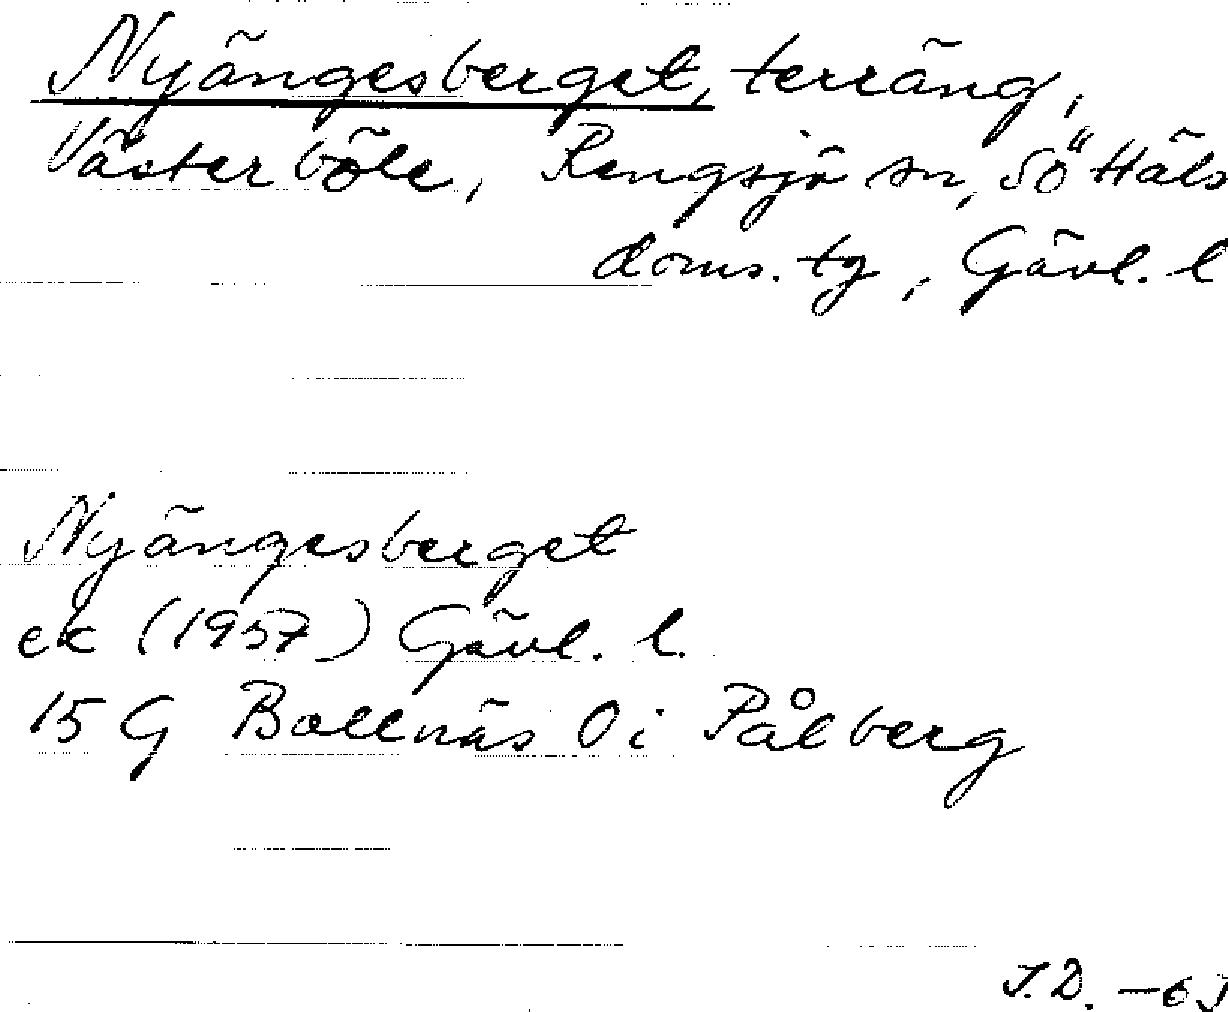 Nyängesberget, terräng,
Västerböle, Rengsjö sn, SöHäls
doms. tg, Gävl. l
Nyängesberget
ek (1957) Gävl. l.
15 G Bollnäs 0 i Pålberg
J.D. -63